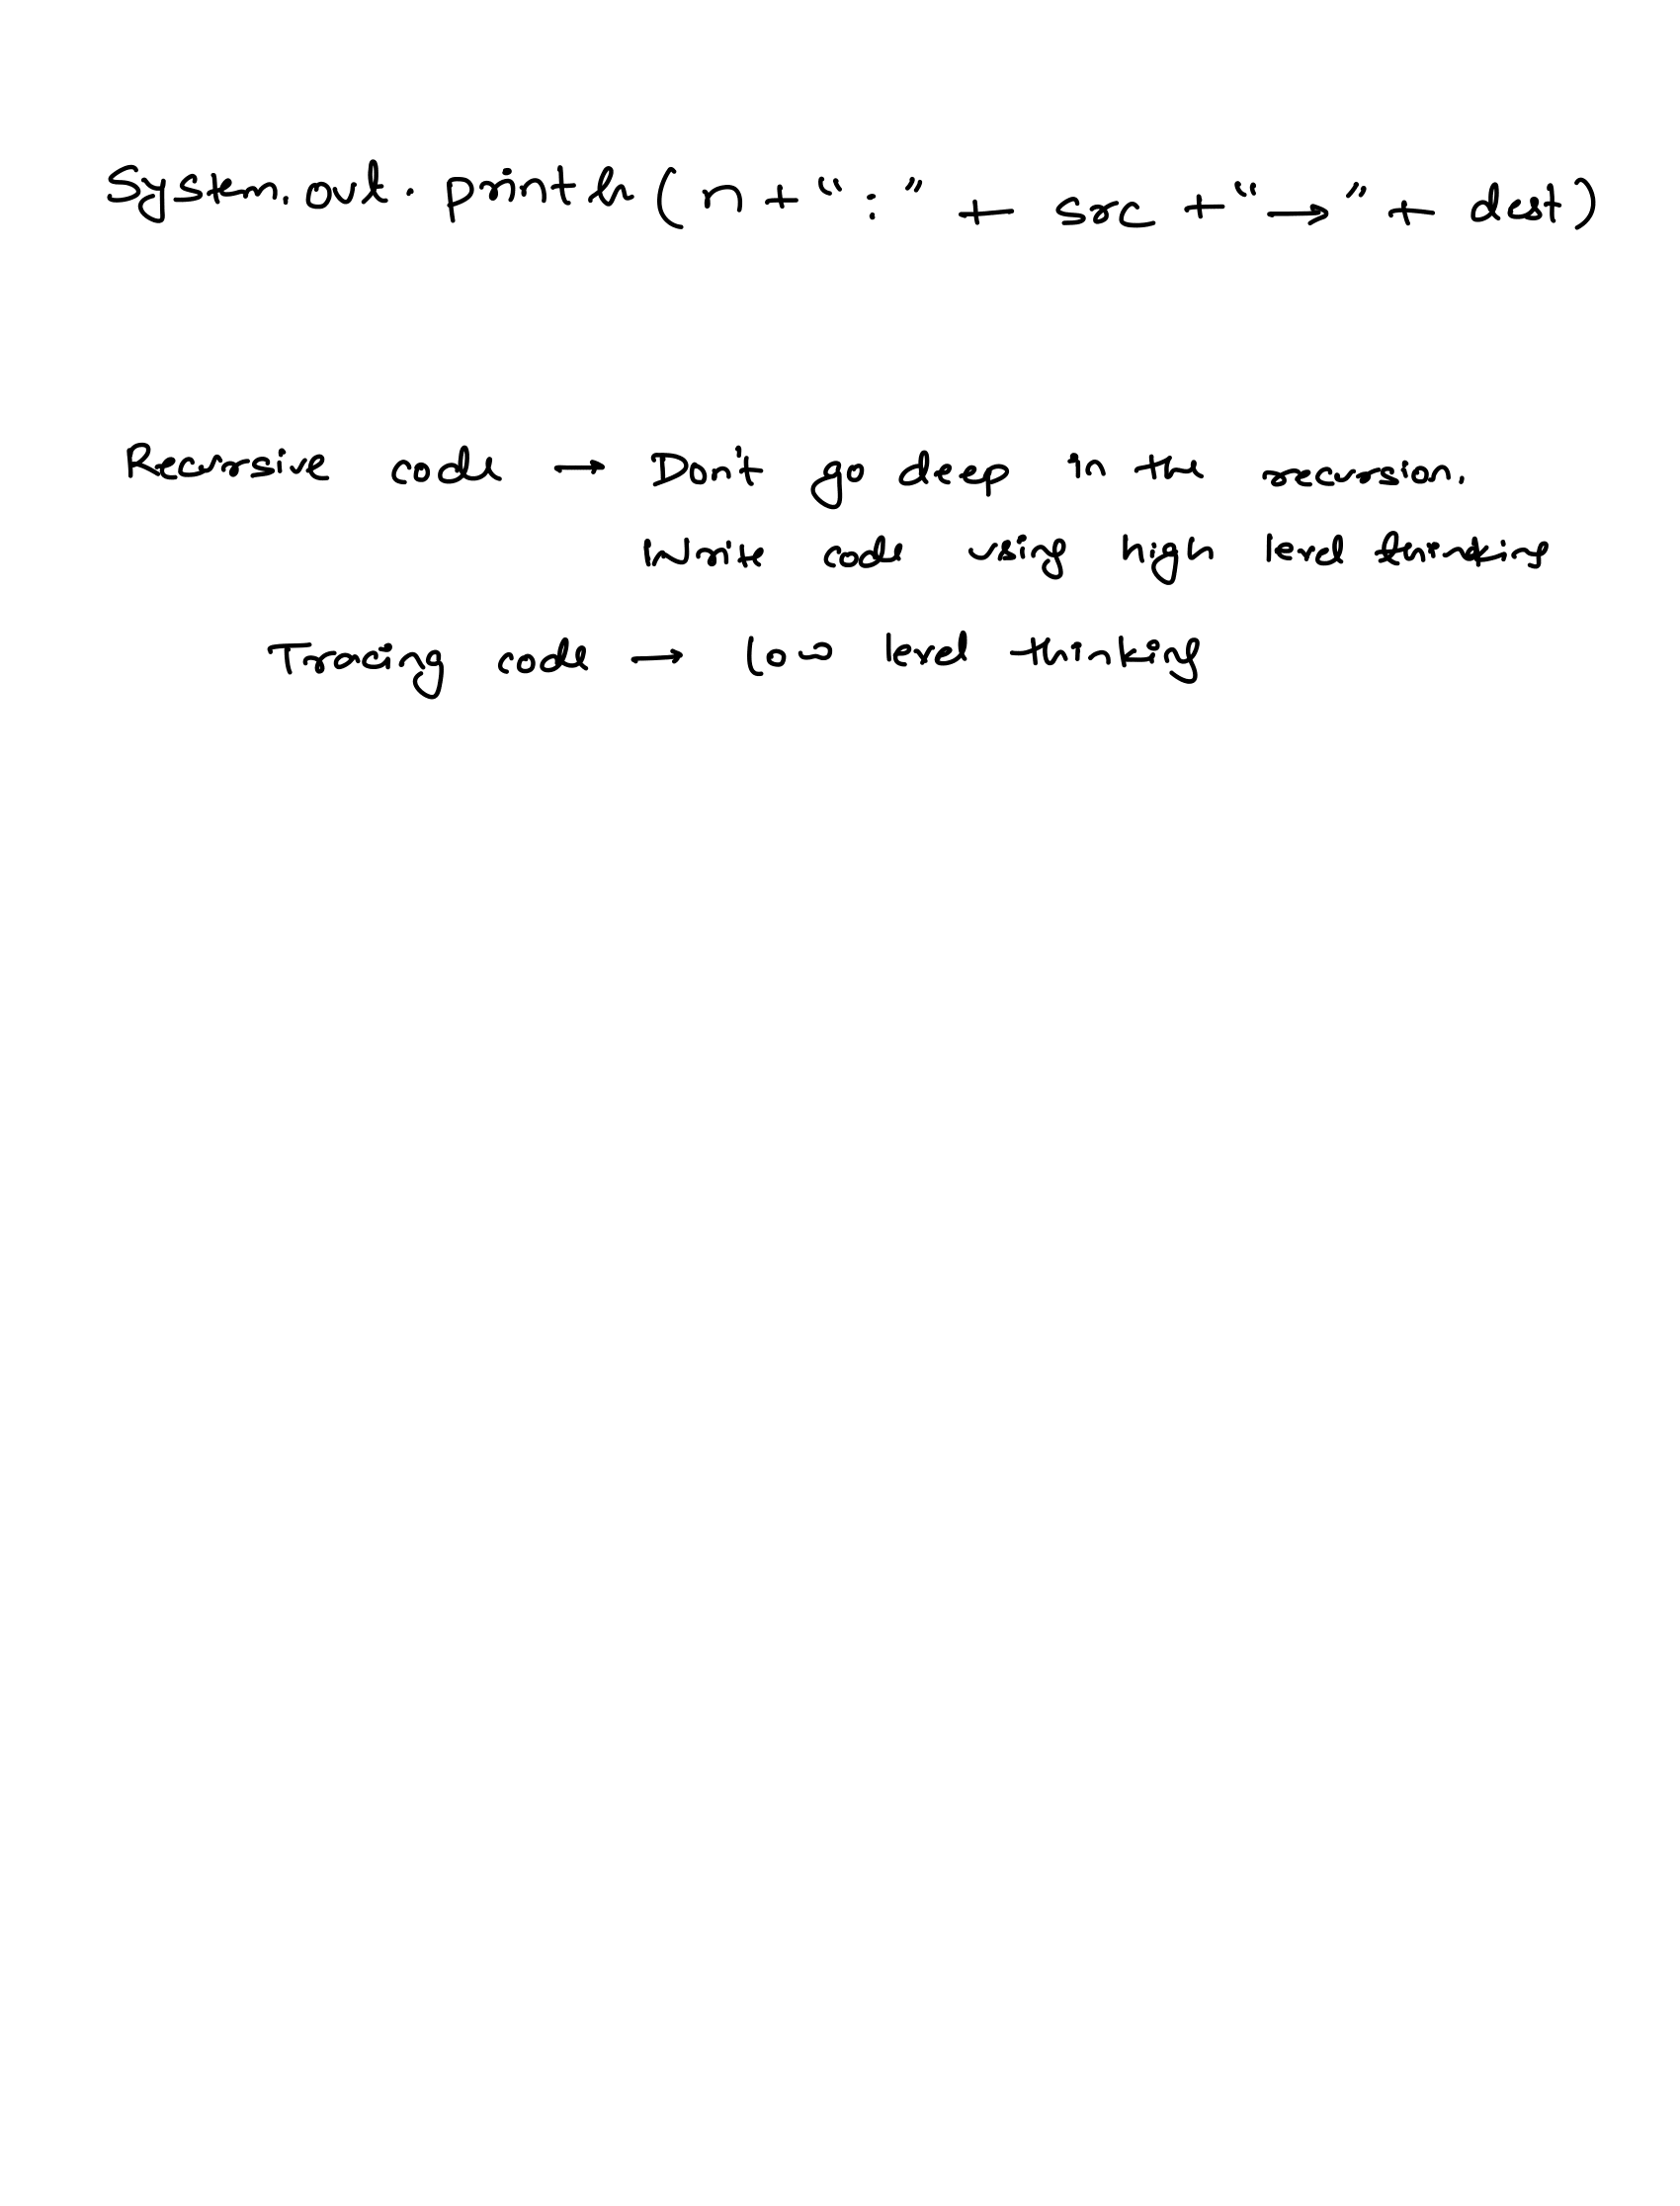 System.out.println(n+":" + src +"→" + dest)
Recursive code → Don't go deep in the recursion.
Write code using high level thinking
Tracing code → low level thinking